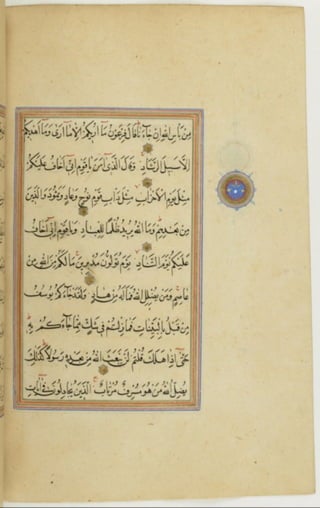 مِن بَأسِ اللهِ إِن جَاءَنَا قَالَ فِرعَونُ مَا أُرِيكُم إِلَّا مَا أَرَى وَمَا أَهدِيكُم
إِلَّا سَبِيلَ الرَّشَادِ وَقَالَ الَّذِي آمَنَ يَا قَومِ إِنِّي أَخَافُ عَلَيكُم
مِثلَ يَومِ الأَحزَابِ مِثلَ دَأبِ قَومِ نُوحٍ وَعَادٍ وَثَمُودَ وَالَّذِينَ
مِن بَعدِهِم وَمَا اللهُ يُرِيدُ ظُلمًا لِلعِبَادِ وَيَا قَومِ إِنِّي أَخَافُ
عَلَيكُم يَومَ التَّنَادِ يَومَ تُوَلُّونَ مُدبِرِينَ مَا لَكُم مِنَ اللهِ مِن
عَاصِمٍ وَمَن يُضلِلِ اللهُ فَمَا لَهُ مِن هَادٍ وَلَقَد جَاءَكُم يُوسُفُ
مِن قَبلُ بِالبَيِّنَاتِ فَمَا زِلتُم فِي شَكٍّ مِمَّا جَاءَكُم بِهِ
حَتَّى إِذَا هَلَكَ قُلتُم لَن يَبعَثَ اللهُ مِن بَعدِهِ رَسُولًا كَذَلِكَ
يُضِلُّ اللهُ مَن هُوَ مُسرِفٌ مُرتَابٌ الَّذِينَ يُجَادِلُونَ فِي آيَاتِ